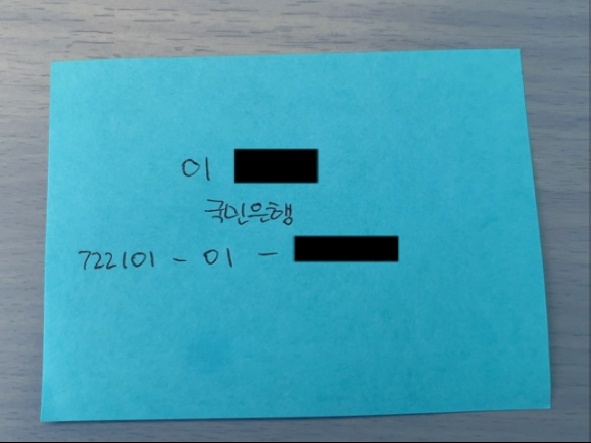 이
국민은행
722101 - 01 -